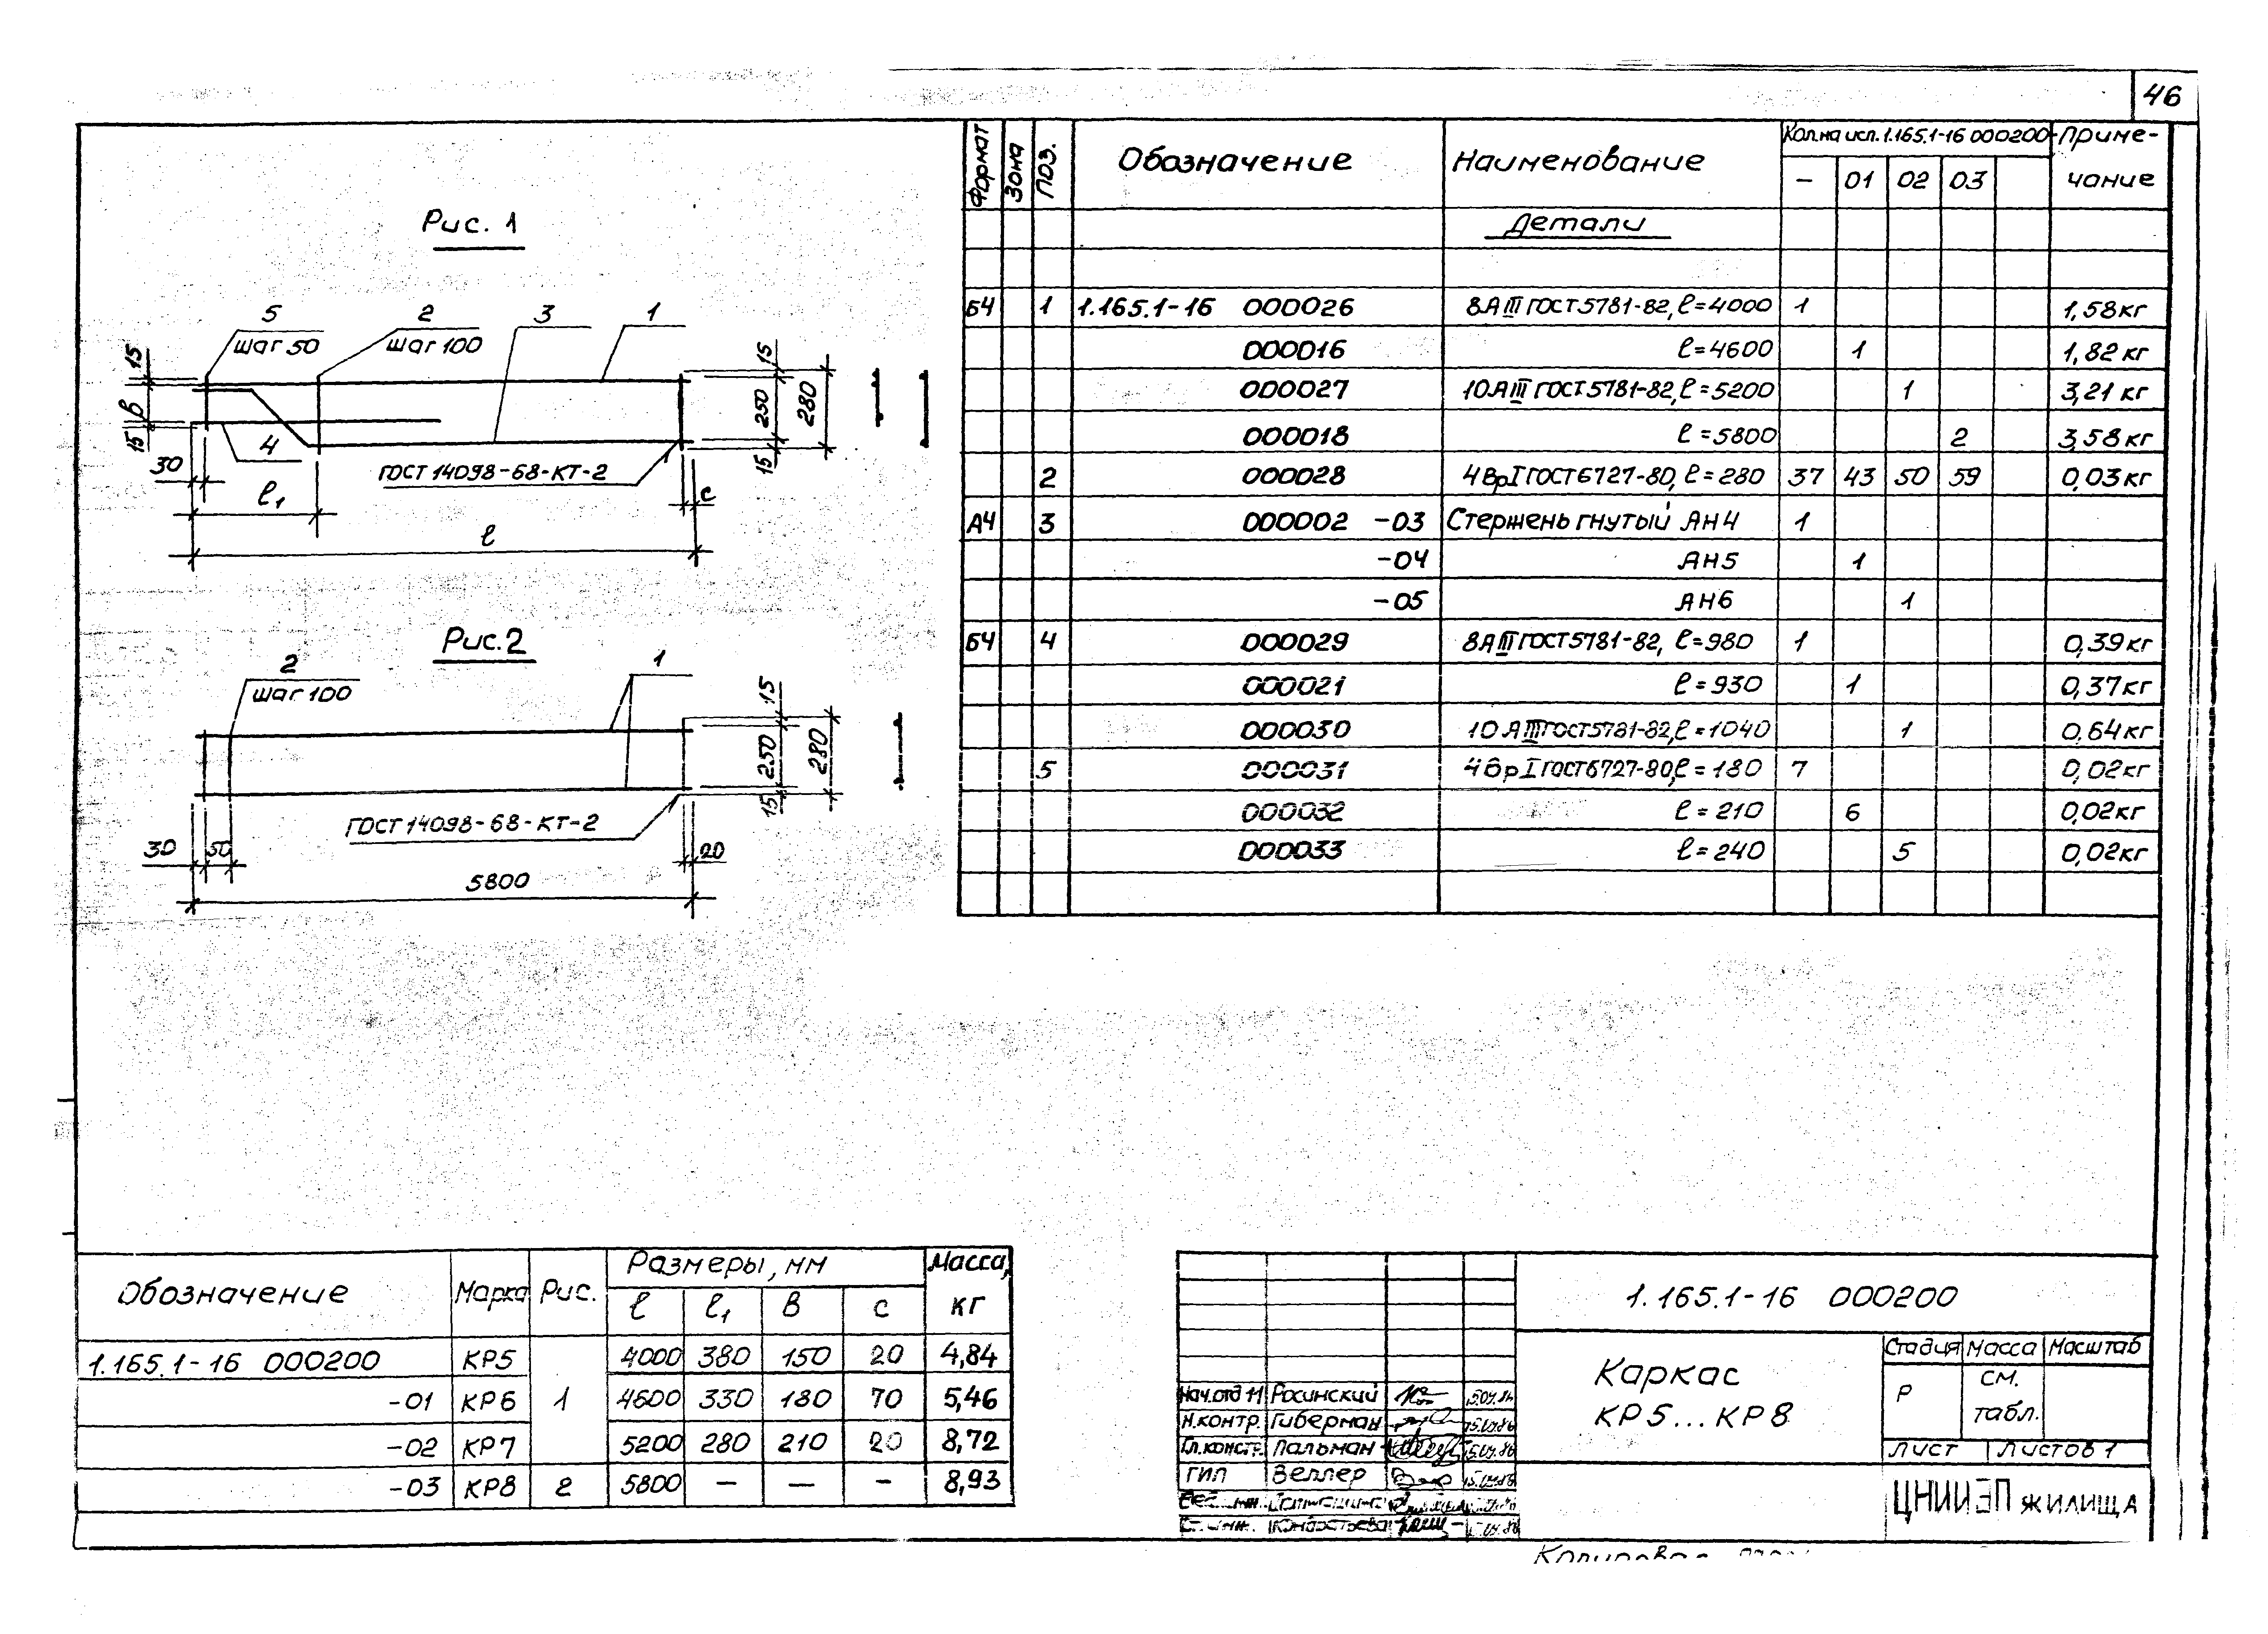 46
Рис. 1
5 шаг 50
2 шаг 100
3
1
15
в
15
4
30
ℓ₁
ГОСТ 14098-68-КТ-2
15
250
280
15
с
ℓ
Рис. 2
2 шаг 100
1
15
250
280
15
ГОСТ 14098-68-КТ-2
30 50
20
5800
Формат Зона Поз. Обозначение Наименование Кол. на исп. 1.165.1-16 000200 Приме-
- 01 02 03 чание
Детали
БЧ 1 1.165.1-16 000026 8АIII ГОСТ 5781-82, ℓ=4000 1 1,58 кг
000016 ℓ=4600 1 1,82 кг
000027 10АIII ГОСТ 5781-82, ℓ=5200 1 3,21 кг
000018 ℓ=5800 2 3,58 кг
2 000028 4ВрI ГОСТ 6727-80, ℓ=280 37 43 50 59 0,03 кг
А4 3 000002 -03 Стержень гнутый АН4 1
-04 АН5 1
-05 АН6 1
БЧ 4 000029 8АIII ГОСТ 5781-82, ℓ=980 1 0,39 кг
000021 ℓ=930 1 0,37 кг
000030 10АIII ГОСТ 5781-82, ℓ=1040 1 0,64 кг
5 000031 4ВрI ГОСТ 6727-80, ℓ=180 7 0,02 кг
000032 ℓ=210 6 0,02 кг
000033 ℓ=240 5 0,02 кг
Обозначение Марка Рис. Размеры, мм Масса,
ℓ ℓ₁ в с кг
1.165.1-16 000200 КР5 4000 380 150 20 4,84
-01 КР6 1 4600 330 180 70 5,46
-02 КР7 5200 280 210 20 8,72
-03 КР8 2 5800 — — — 8,93
1.165.1-16 000200
Каркас
КР5...КР8
Стадия Масса Масштаб
Р см.
табл.
Лист Листов 1
ЦНИИЭП жилища
Нач.отд 11 Росинский
Н.контр. Гиберман
Гл.констр. Пальман
ГИП Веллер
Копировал